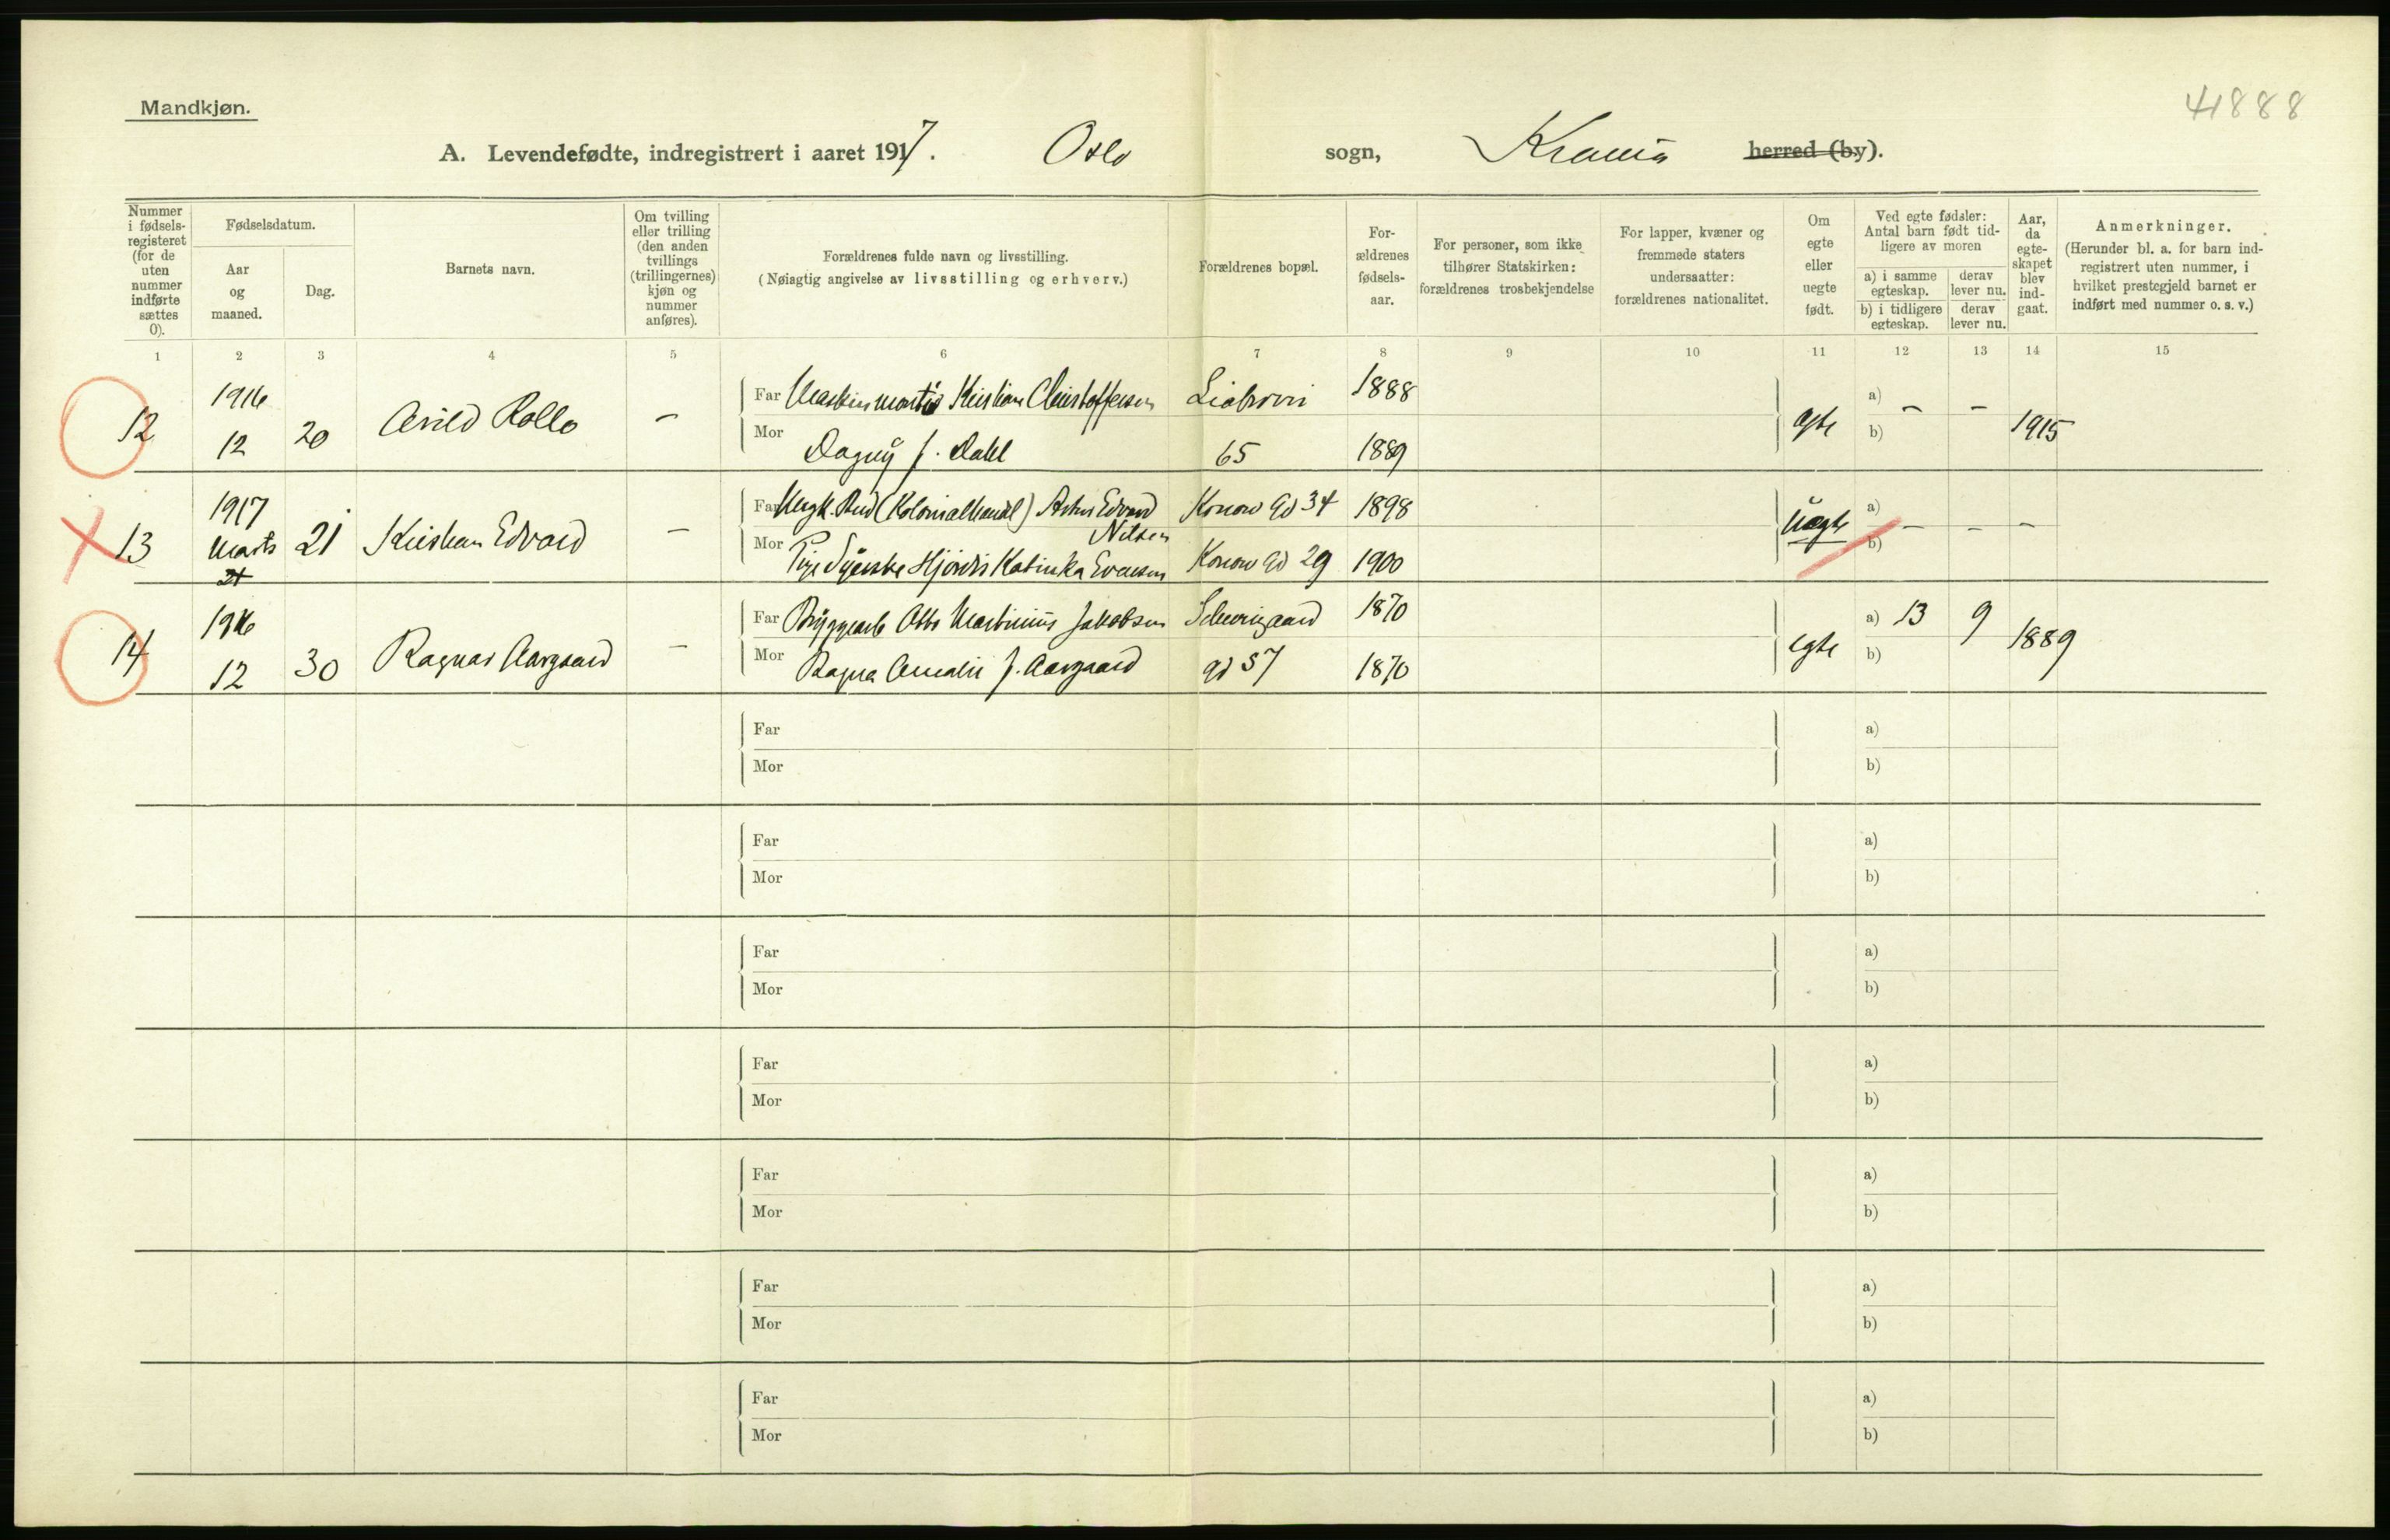 Mandkjøn.
41888
A. Levendefødte, indregistrert i aaret 1917. Oslo sogn, Krania herred (by).
Nummer i fødsels-registeret (for de uten nummer indførte sættes 0).
Fødselsdatum.
Aar og maaned.
Dag.
Barnets navn.
Om tvilling eller trilling (den anden tvillings (trillingernes) kjøn og nummer anføres).
Forældrenes fulde navn og livsstilling.
(Nøiagtig angivelse av livsstilling og erhverv.)
Forældrenes bopæl.
For-ældrenes fødsels-aar.
For personer, som ikke tilhører Statskirken: forældrenes trosbekjendelse
For lapper, kvæner og fremmede staters undersaatter: forældrenes nationalitet.
Om egte eller uegte født.
Ved egte fødsler: Antal barn født tid-ligere av moren
a) i samme egteskap.
derav lever nu.
b) i tidligere egteskap.
derav lever nu.
Aar, da egte-skapet blev ind-gaat.
Anmerkninger.
(Herunder bl. a. for barn ind-registrert uten nummer, i hvilket prestegjeld barnet er indført med nummer o. s. v.)
1 2 3 4 5 6 7 8 9 10 11 12 13 14 15
12 1916 12 20 Arild Rollo –
Far Maskinmontør Kristian Christoffersen Liabrovei 1888
Mor Dagny f. Dahl 65 1889
egte a) – – b) 1915
13 1917 Marts 21 21 Kristian Edvard –
Far (Kolonialhandl) Edvard Nilsen Konow gd 34 1898
Mor Hjørdis Katinka Konow gd 29 1900
uegte a) – – – b)
14 1916 12 30 Ragnar Aargaard –
Far Bryggearb Otto Martinius Jakobsen Schweigaard 1870
Mor Ragna Amalie f. Aargaard gd 57 1870
egte a) 13 9 b) 1889
Far a)
Mor b)
Far a)
Mor b)
Far a)
Mor b)
Far a)
Mor b)
Far a)
Mor b)
Far a)
Mor b)
Far a)
Mor b)